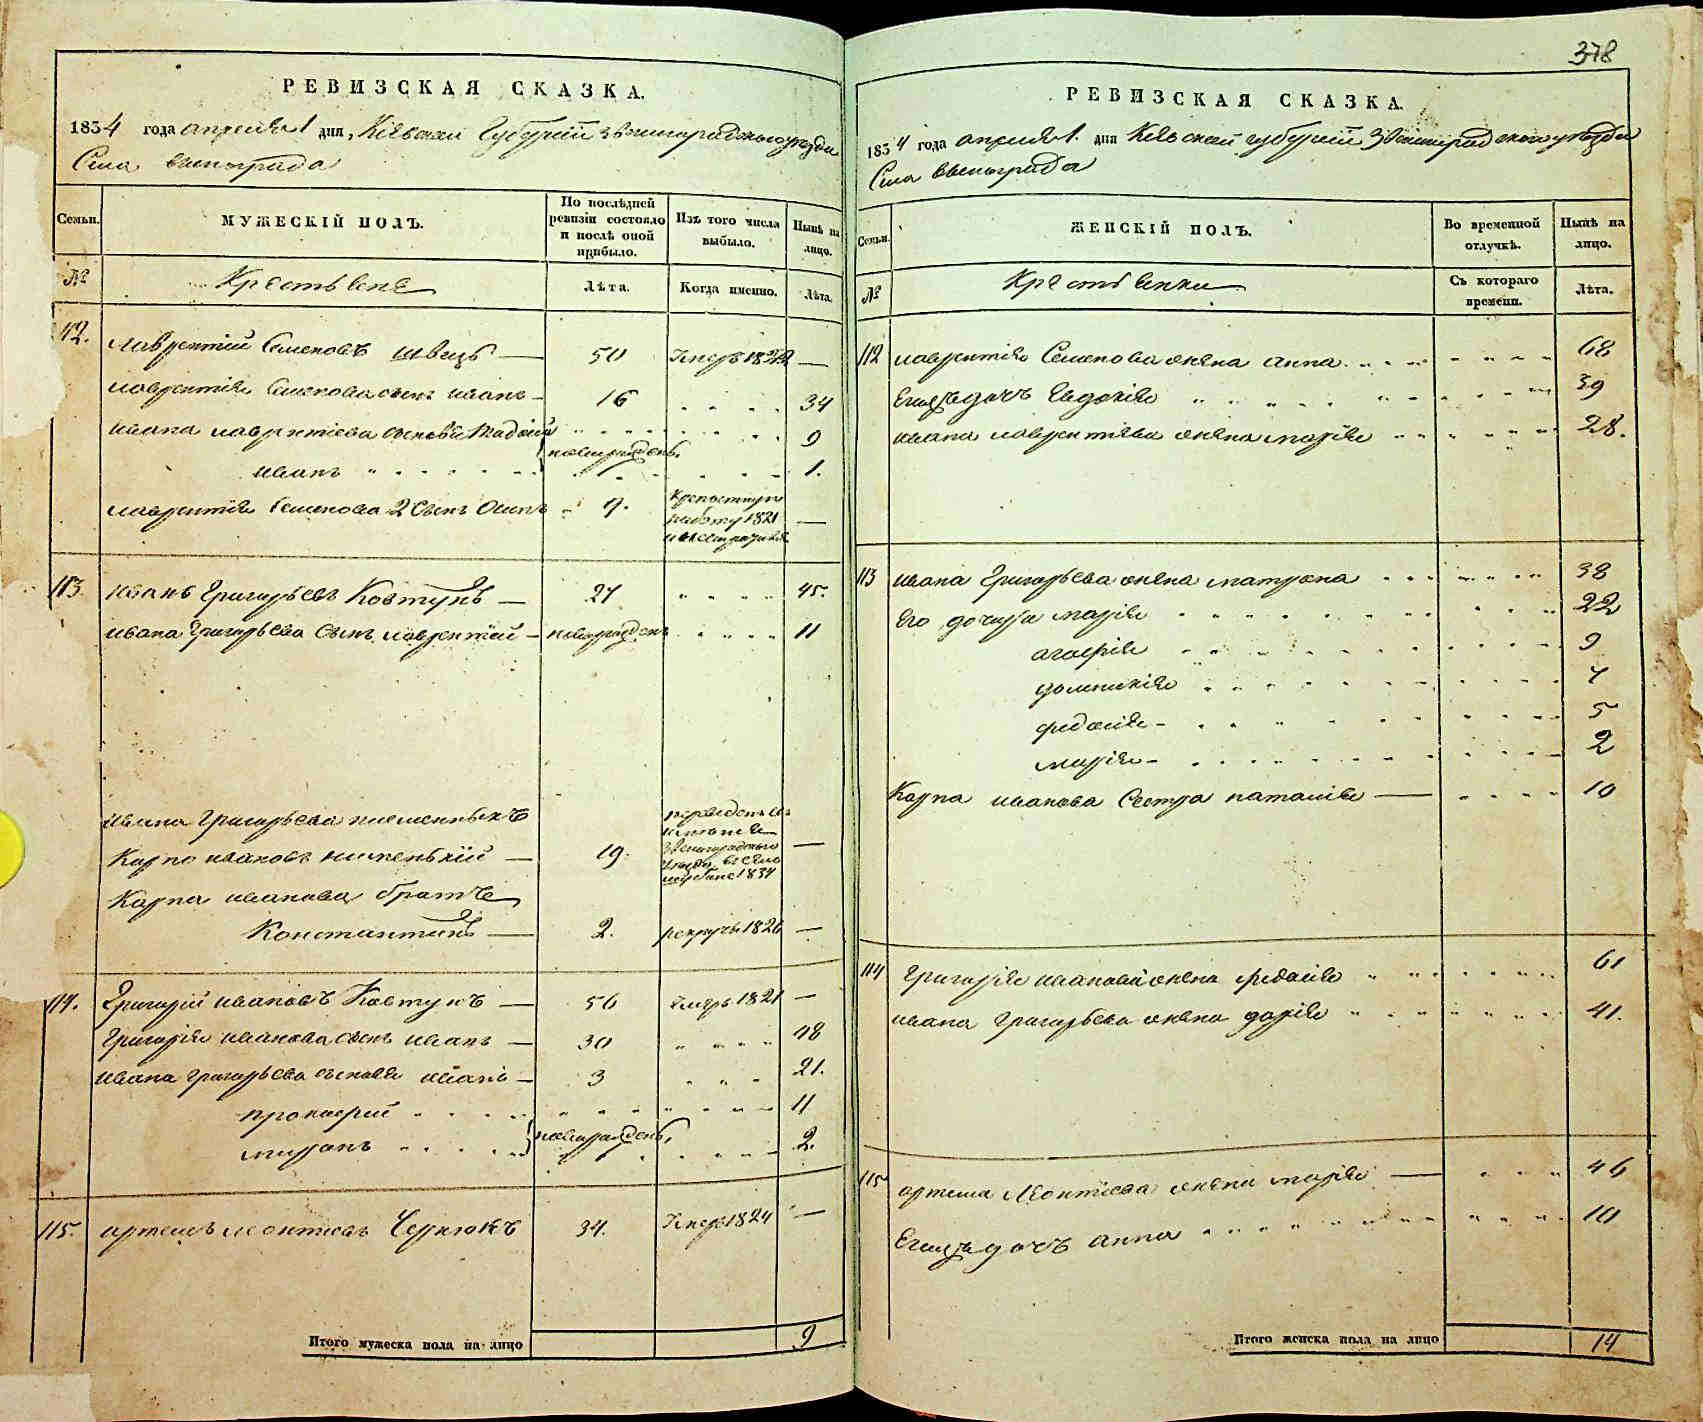 РЕВИЗСКАЯ СКАЗКА.
1834 года апреля 1 дня, Кіевской Губерніи Звенигородского уезда
Села Винограда
Семьи.
МУЖЕСКІЙ ПОЛЪ.
По послѣдней ревизіи состояло и послѣ оной прибыло.
Изъ того числа выбыло.
Нынѣ на лицо.
№
Крестьяне
Лѣта.
Когда именно.
Лѣта.
112. Лаврентій Семеновъ Швецъ — 50 —
Лаврентія Семенова сынъ Иванъ — 16 34
Ивана Лаврентіева сыновья 9
Иванъ новорожденъ 1.
Лаврентія Семенова 2 сынъ Осипъ 1821 —
113. Иванъ Григорьевъ Ковтунъ — 27 45.
Ивана Григорьева сынъ Лаврентій — новорожденъ 11
Ивана Григорьева племенникъ
Карпо Ивановъ — 19. переведенъ Звенигородского уезда в село 1834 —
Карпа Иванова братъ
Константинъ — 2. рекрутъ 1826 —
114. Григорій Ивановъ Ковтунъ — 56 умеръ 1821 —
Григорія Иванова сынъ Иванъ — 30 48
Ивана Григорьева сыновья Иванъ — 3 21.
Прокофій 11
Миронъ новорожденъ, 2.
115. Артемъ Леонтіевъ Чернюкъ 34. умеръ 1824 —
Итого мужеска пола на лицо 9
378
РЕВИЗСКАЯ СКАЗКА.
1834 года апреля 1. дня Кіевской губерніи Звенигородского уезда
Села Винограда
Семьи.
ЖЕНСКІЙ ПОЛЪ.
Во временной отлучкѣ.
Нынѣ на лицо.
№
Крестьянки
Съ котораго времени.
Лѣта.
112 Лаврентія Семенова жена Анна 68
Его дочь Евдокія 39
Ивана Лаврентіева жена Марія 28.
113 Ивана Григорьева жена Матрона 38
Его дочери Марія 22
Агафія 9
Домникія 7
Федосія 5
Марія 2
Карпа Иванова сестра Наталія — 10
114 Григорія Иванова жена Федосія 61
Ивана Григорьева жена Дарія 41.
115 Артема Леонтіева жена Марія — 46
Его дочь Анна 10
Итого женска пола на лицо 14